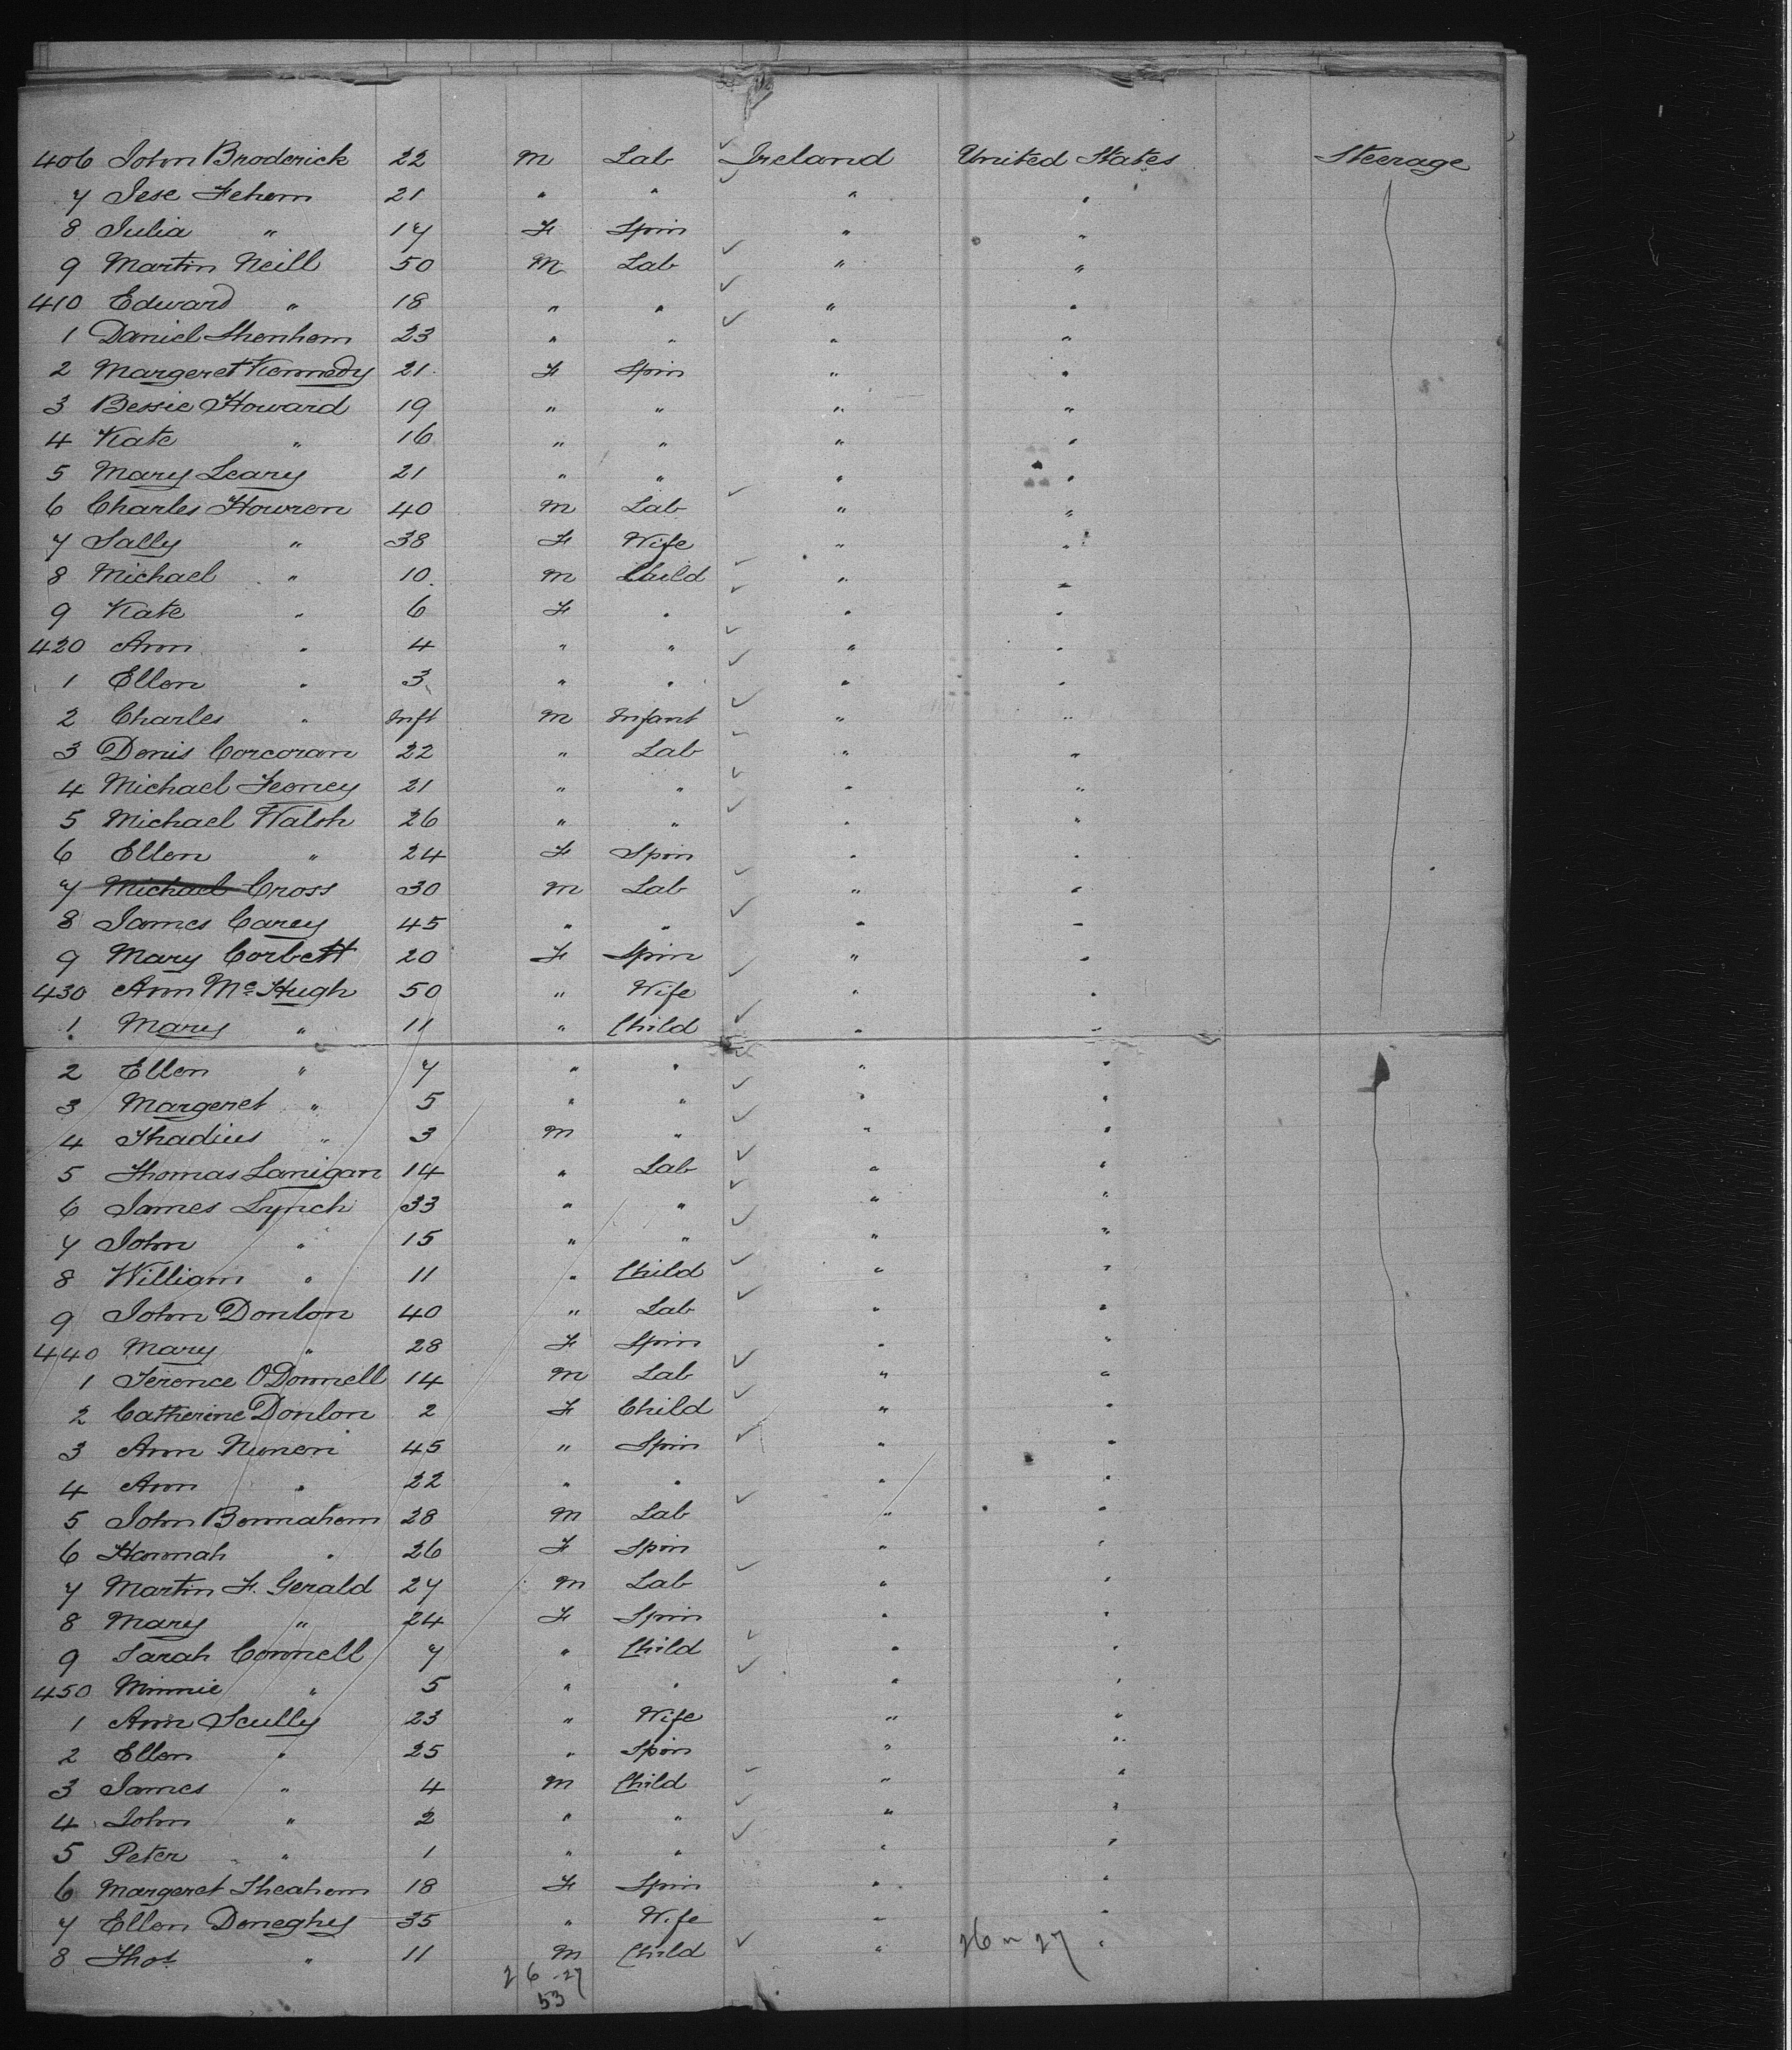 406 John Broderick 22 M Lab Ireland United States Steerage
7 Jese Fehom 21 " " " "
8 Julia " 17 F Spin " "
9 Martin Neill 50 M Lab " "
410 Edward " 18 " " " "
1 Daniel Shenhom 23 " " " "
2 Margeret Kennedy 21 F Spin " "
3 Bessie Howard 19 " " " "
4 Kate " 16 " " " "
5 Mary Leary 21 " " " "
6 Charles Howren 40 M Lab " "
7 Sally " 38 F Wife " "
8 Michael " 10 M Child " "
9 Kate " 6 F " " "
420 Ann " 4 " " " "
1 Ellen " 3 " " " "
2 Charles " Inft M Infant " "
3 Denis Corcoran 22 " Lab " "
4 Michael Feeney 21 " " " "
5 Michael Walsh 26 " " " "
6 Ellen " 24 F Spin " "
7 Michael Cross 30 M Lab " "
8 James Carey 45 " " " "
9 Mary Corbett 20 F Spin " "
430 Ann McHugh 50 " Wife " "
1 Mary " 11 " Child " "
2 Ellen " 7 " " " "
3 Margeret " 5 " " " "
4 Thadius " 3 M " " "
5 Thomas Lanigan 14 " Lab " "
6 James Lynch 33 " " " "
7 John " 15 " " " "
8 William " 11 " Child " "
9 John Donlon 40 " Lab " "
440 Mary " 28 F Spin " "
1 Terence O'Donnell 14 M Lab " "
2 Catherine Donlon 2 F Child " "
3 Ann Nunen 45 " Spin " "
4 Ann " 22 " " " "
5 John Bonnahom 28 M Lab " "
6 Hannah " 26 F Spin " "
7 Martin F. Gerald 27 M Lab " "
8 Mary " 24 F Spin " "
9 Sarah Connell 7 " Child " "
450 Minnie " 5 " " " "
1 Ann Scully 23 " Wife " "
2 Ellen " 25 " Spin " "
3 James " 4 M Child " "
4 John " 2 " " " "
5 Peter " 1 " " " "
6 Margeret Sheahom 18 F Spin " "
7 Ellen Doneghy 35 " Wife " "
8 Thos " 11 M Child " 26 " 27 "
26-27
53